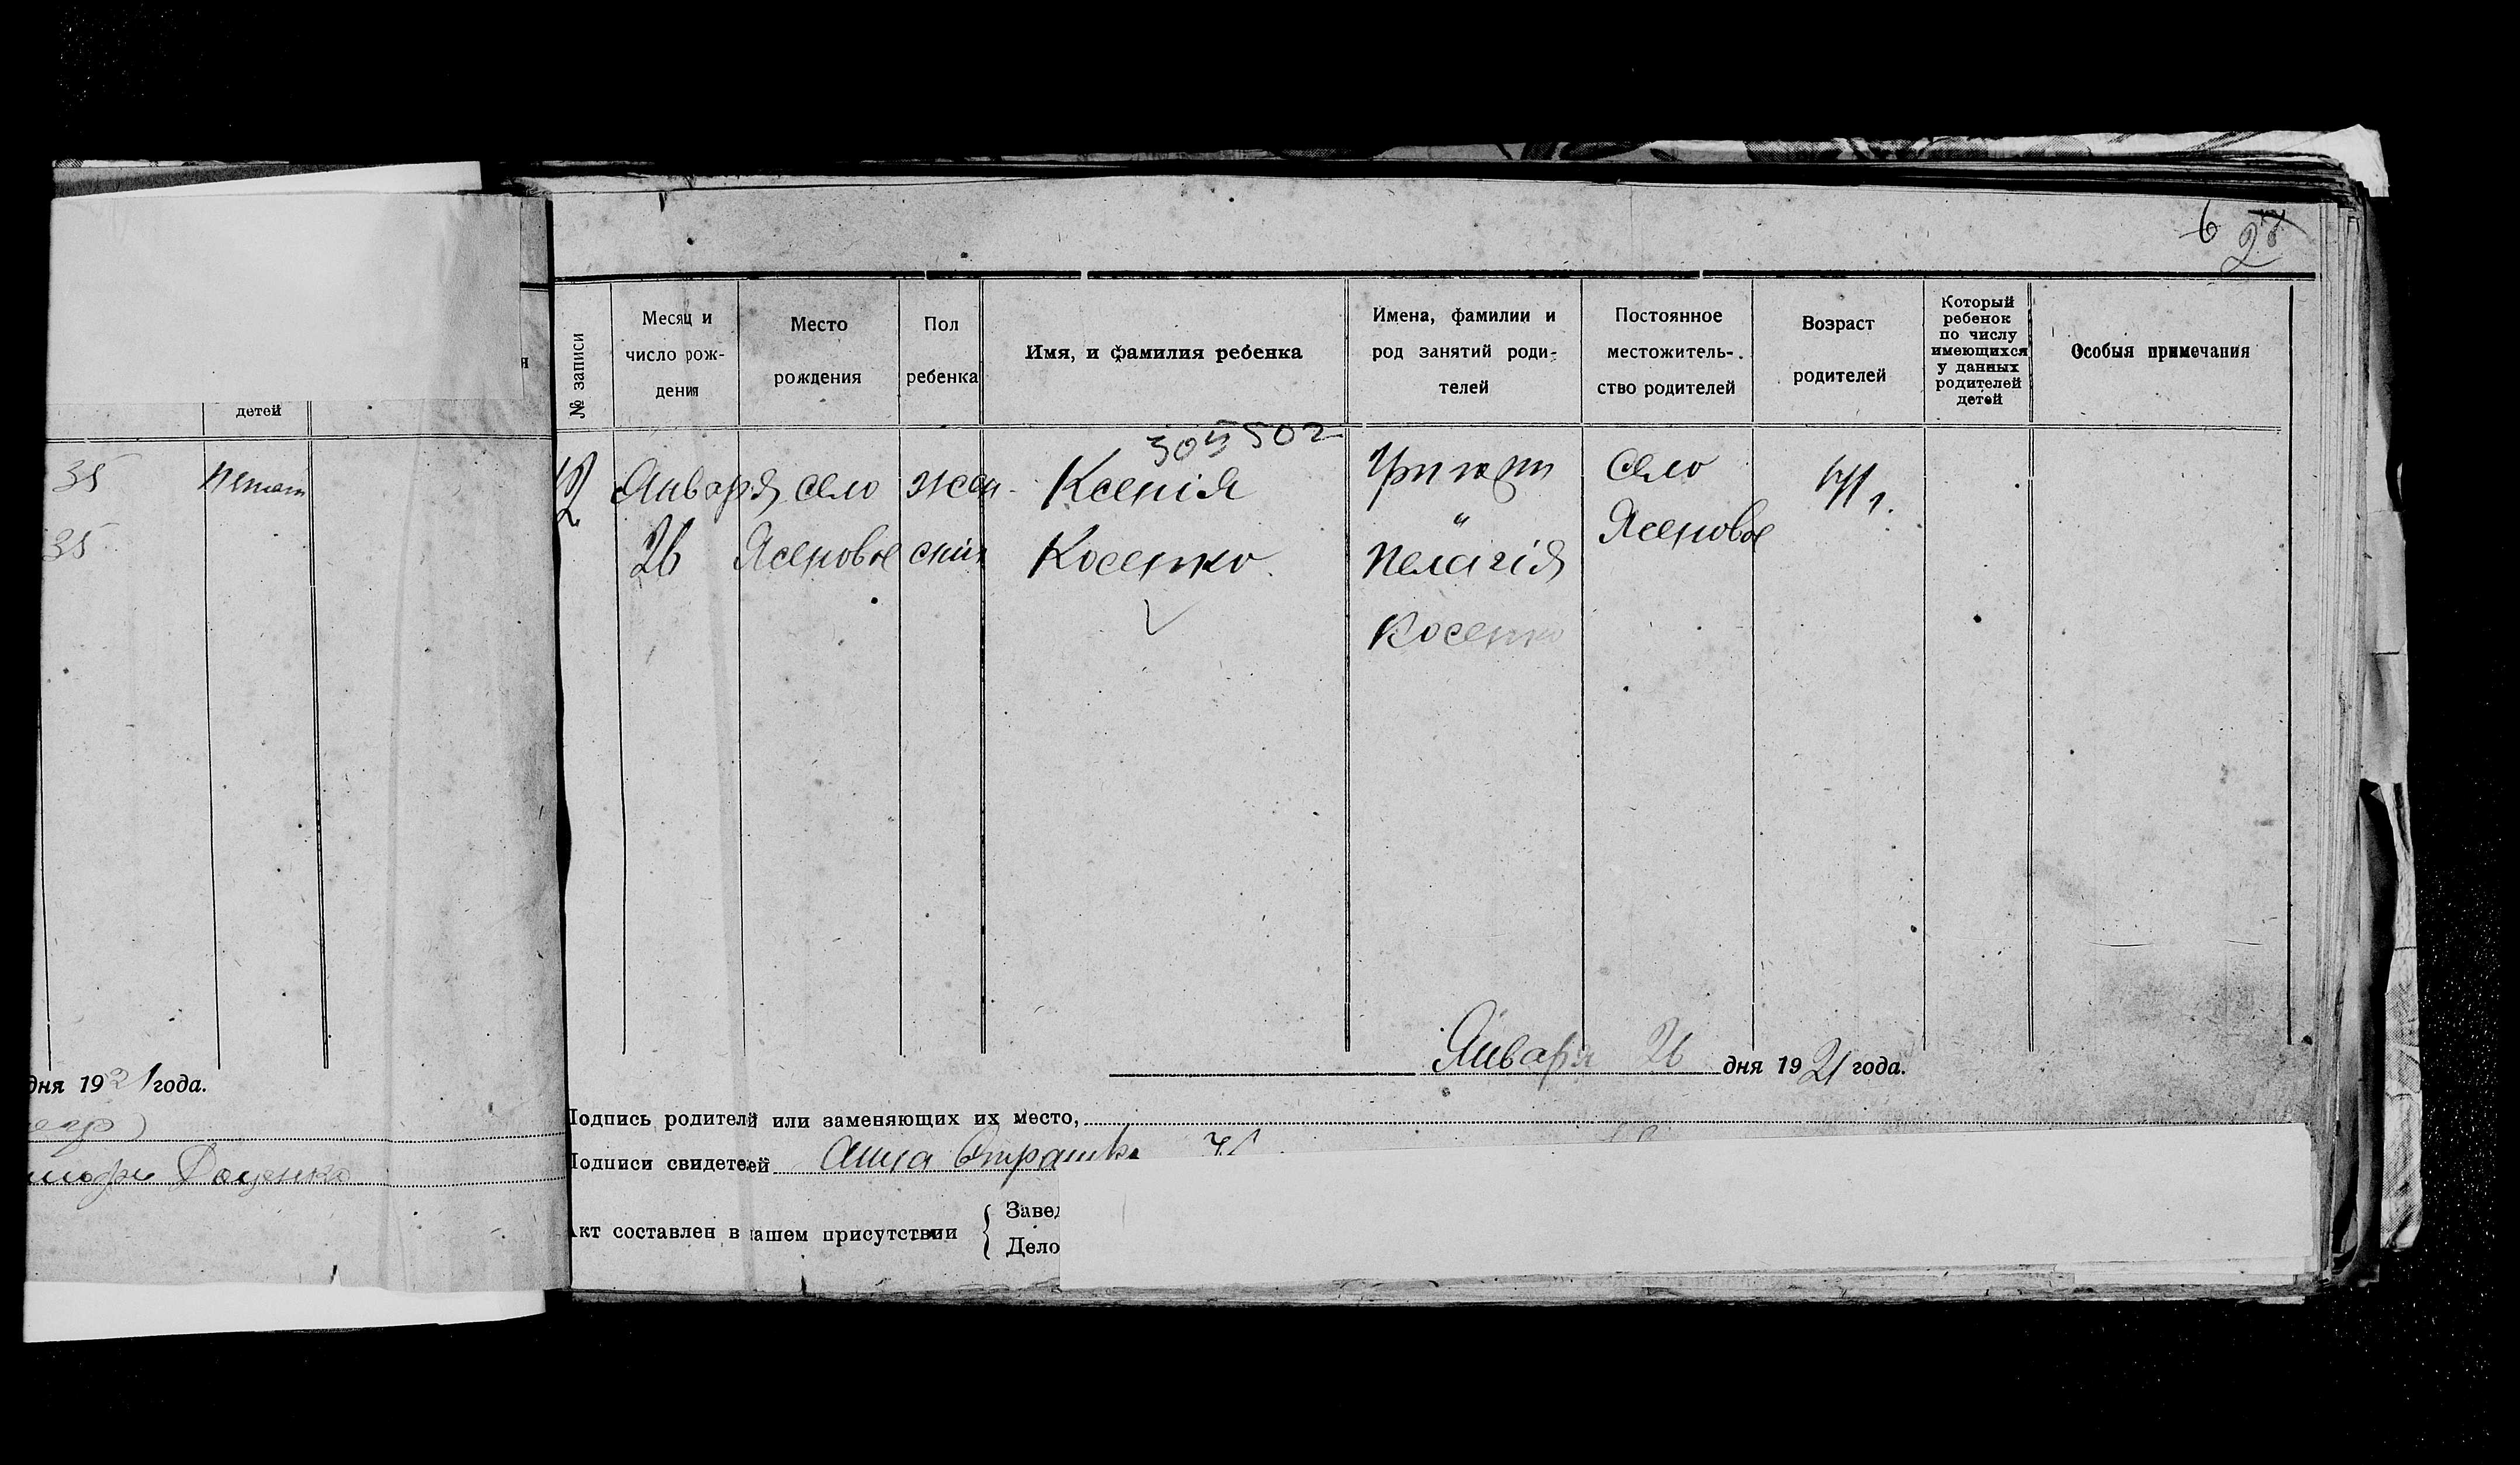 6 27
я
детей
35 
35
дня 1921 года.
Доценко
№ записи
Месяц и
число рож-
дения
Место
рождения
Пол
ребенка
Имя, и фамилия ребенка
Имена, фамилии и
род занятий роди-
телей
Постоянное
местожитель-
ство родителей
Возраст
родителей
Который
ребенок
по числу
имеющихся
у данных
родителей
детей
Особыя примечания
305502
Января село жен- Ксенія село
26 Ясеновое ский Косенко Пелагія Ясеновое
Косенко
Января 26 дня 1921 года.
Подпись родителей или заменяющих их место,
Подписи свидетелей Анна
Акт составлен в нашем присутствии
Завед
Дело